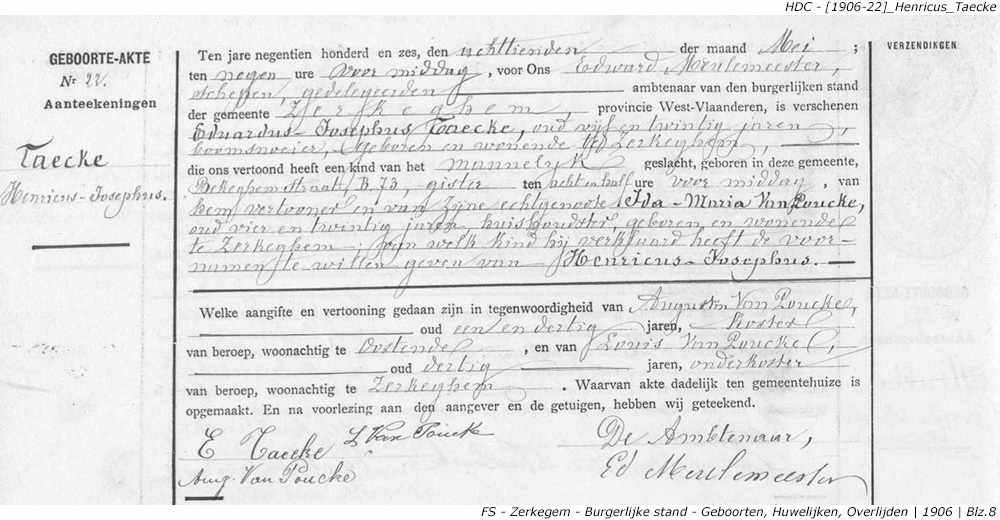 HDC - [1906-22]_Henricus_Taecke
GEBOORTE-AKTE
Nr 22.
Aanteekeningen
Taecke
Henricus-Josephus.
VERZENDINGEN
Ten jare negentien honderd en zes, den achttienden der maand Mei ;
ten negen ure voor middag, voor Ons Edward Meulemeester,
schepen, gedelegeerden ambtenaar van den burgerlijken stand
der gemeente Zerkeghem provincie West-Vlaanderen, is verschenen
Eduardus-Josephus Taecke, oud vijf en twintig jaren
boomsnoeier, geboren en wonende te Zerkeghem,
die ons vertoond heeft een kind van het mannelyk geslacht, geboren in deze gemeente,
Bekeghemstraat, B.73, gister ten acht en half ure voor middag, van
hem vertooner en van zijne echtgenoote Ida-Maria Van Poucke,
oud vier en twintig jaren, huishoudster, geboren en wonende
te Zerkeghem; van welk kind hij verklaard heeft de voor-
namen te willen geven van Henricus-Josephus.
Welke aangifte en vertooning gedaan zijn in tegenwoordigheid van Augustin Van Poucke,
oud een en dertig jaren, koster
van beroep, woonachtig te Oostende, en van Louis Van Poucke,
oud dertig jaren, onderkoster
van beroep, woonachtig te Zerkeghem. Waarvan akte dadelijk ten gemeentehuize is
opgemaakt. En na voorlezing aan den aangever en de getuigen, hebben wij geteekend.
E Taecke L Van Poucke De Ambtenaar,
Aug. Van Poucke Ed Meulemeester
FS - Zerkegem - Burgerlijke stand - Geboorten, Huwelijken, Overlijden | 1906 | Blz.8